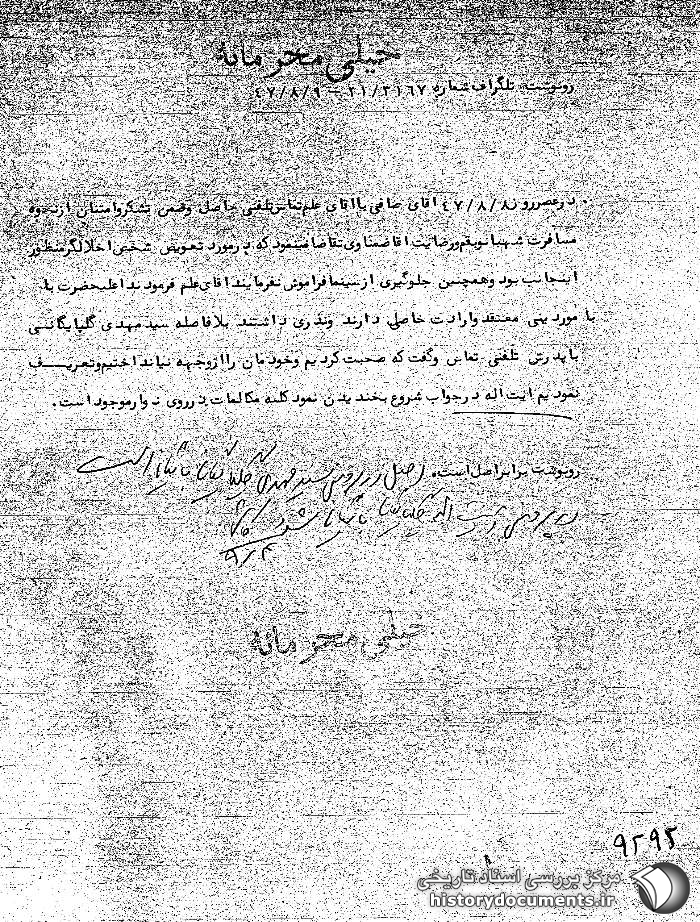 خیلی محرمانه
رونوشت تلگراف شماره ۲۱/۳۱۶۷ – ۴۷/۸/۹
درعصرروز ۴۷/۸/۸ آقای صافی باآقای علم تماس تلفنی حاصل وضمن تشکروامتنان ازنحوه
مسافرت شهبانوبقم ورضایت آقاضمناوی تقاضامینمود که درمورد تعویض شخص اخلالگرمنظور
اینجانب بود وهمچنین جلوگیری ازسینمافراموش نفرمایند آقای علم فرمودند اعلیحضرت با
با موردینی معتقد وارادت خاصی دارند ونذری داشتند بلافاصله سیدمهدی گلپایگانی
باپدرش تلفنی تماس وگفت که صحبت کردیم وخودمان راازوجهه نیانداختیم وتعریف
نمودیم آیت اله درجواب شروع بخندیدن نمود کلیه مکالمات درروی نوارموجود است.
رونوشت برابراصل است. اصل در پرونده سید مهدی گلپایگانی بایگانی است
در پرونده آیت اله گلپایگانی بایگانی شود
۹/۳
خیلی محرمانه
۹۲۹۲
مرکز بررسی اسناد تاریخی
historydocuments.ir